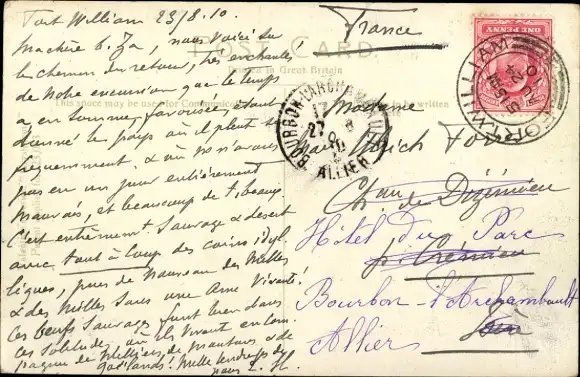 Fort William 23/8.10.
Ma chère , nous voici sur
le chemin du retour, très enchantés
de notre excursion que le temps
a en somme favorisée étant
donné le pays où il pleut si
fréquemment & où nous n'avons
pas eu un jour entièrement
mauvais, et beaucoup de t. beaux.
C'est entièrement sauvage & désert
avec tout à coup des coins idyl
liques, puis de nouveau des milles
& des milles sans une âme vivante!
Ces bœufs sauvages font bien dans
ces solitudes où ils vivent en com
pagnie de milliers de moutons & de
goélands! Mille tendresses de
nous
POST CARD.
Printed in Great Britain
This space may be used for Communication
to be written
France
Madame
Ulrich
Chau de Dizimieu
p. Crémieu
Isère
Hôtel du Parc
Bourbon-l'Archambault
Allier
ONE PENNY
FORT WILLIAM
BOURBON-L'ARCHAMBAULT
ALLIER